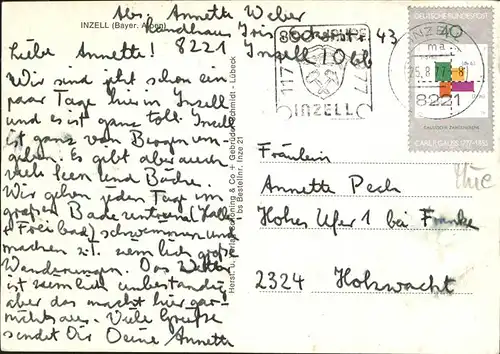 Abs. Annette Weber
INZELL (Bayer. Alpen)
Landhaus Iris Lockerstr. 43
8221 Inzell / Obb
Liebe Annette!
Wir sind jetzt schon ein
paar Tage hier in Inzell
und es ist ganz toll. Inzell
ist ganz von Bergen um-
geben. Es gibt aber auch
viele Seen und Bäche.
Wir gehen jeden Tag im
großen Badezentrum (Hallen
+ Freibad) schwimmen und
machen z.T. ziemlich große
Wanderungen. Das Wetter
ist ziemlich unbeständig
aber das macht hier gar-
nichts aus. Viele Grüße
sendet Dir Deine Annette
Herst. u. Verlag Schöning & Co + Gebrüder Schmidt - Lübeck
Bestellnr. Inze 21
800 JAHRE
1177
1977
INZELL
DEUTSCHE BUNDESPOST
40
INZELL
ma
25.8.77-8
8221
CARL F. GAUSS 1777-1855
Fräulein
Annette Pech
Hohes Ufer 1 bei Franke
2324 Hohwacht